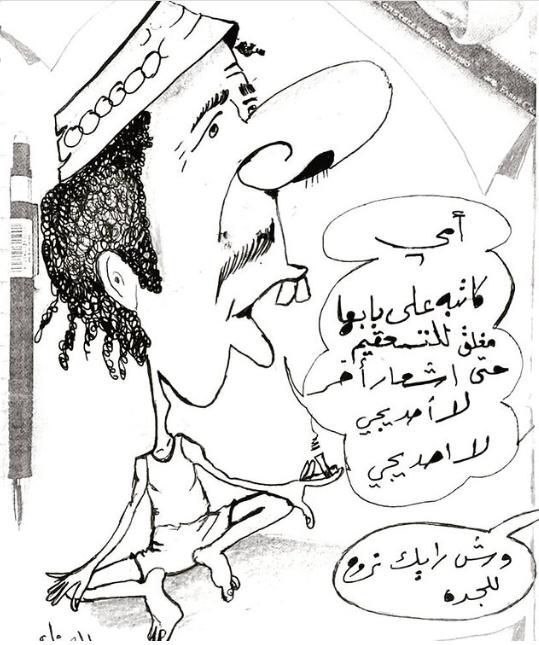 أمي
كاتبه على بابها
مغلق للتعقيم
حتى اشعار أخر
لا أحد يجي
لا احد يجي
وش رايك نروح
للجده